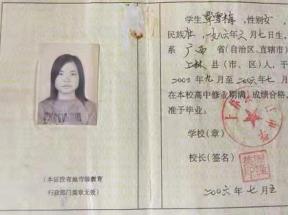 学生覃雪梅，性别女，
民族壮，一九八六年六月七日生，
系广西省(自治区、直辖市)
上林县(市、区)人，于
2003年九月至2006年七月
在本校高中修业期满，成绩合格，
准予毕业。
学校(章)
校长(签名)
2006年七月五
(本证没有地市级教育
行政部门盖章无效)